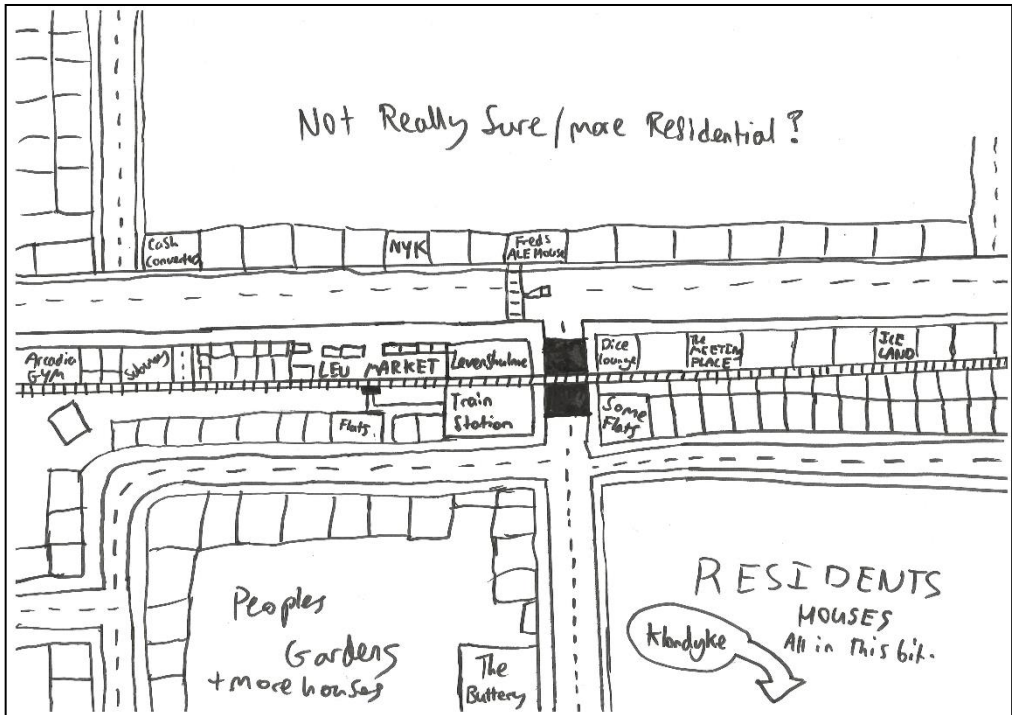 Not Really Sure/more Residential?
Cash
Converted
NYK
Freds
ALE House
Arcadia
GYM
Subway
LEV MARKET
Levenshulme
Train
Station
Dice
lounge
The
MEETIN
PLACE
ICE
LAND
Flats
Some
Flats
Peoples
Gardens
+ more houses
The
Buttery
RESIDENTS
HOUSES
All in this bit.
Klondyke